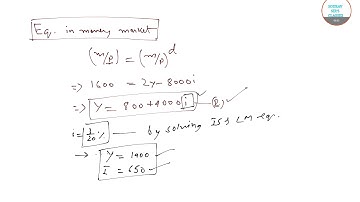 Eq. in money market
(m/p) = (m/p)^d
⇒ 1600 = 2y - 8000i
⇒ Y = 800 + 4000 i — (2)
i = 1/20 % — by solving IS & LM eq.
→ Y = 1000
I = 650